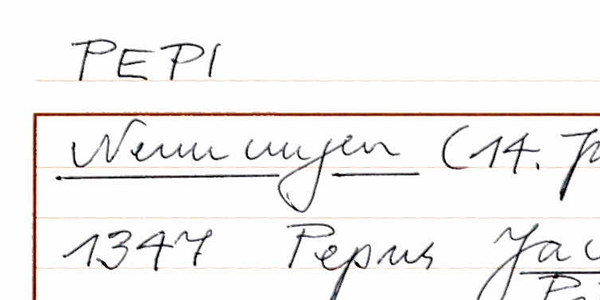 PEPI
Nennungen (14. J
1347 Pepus Jac